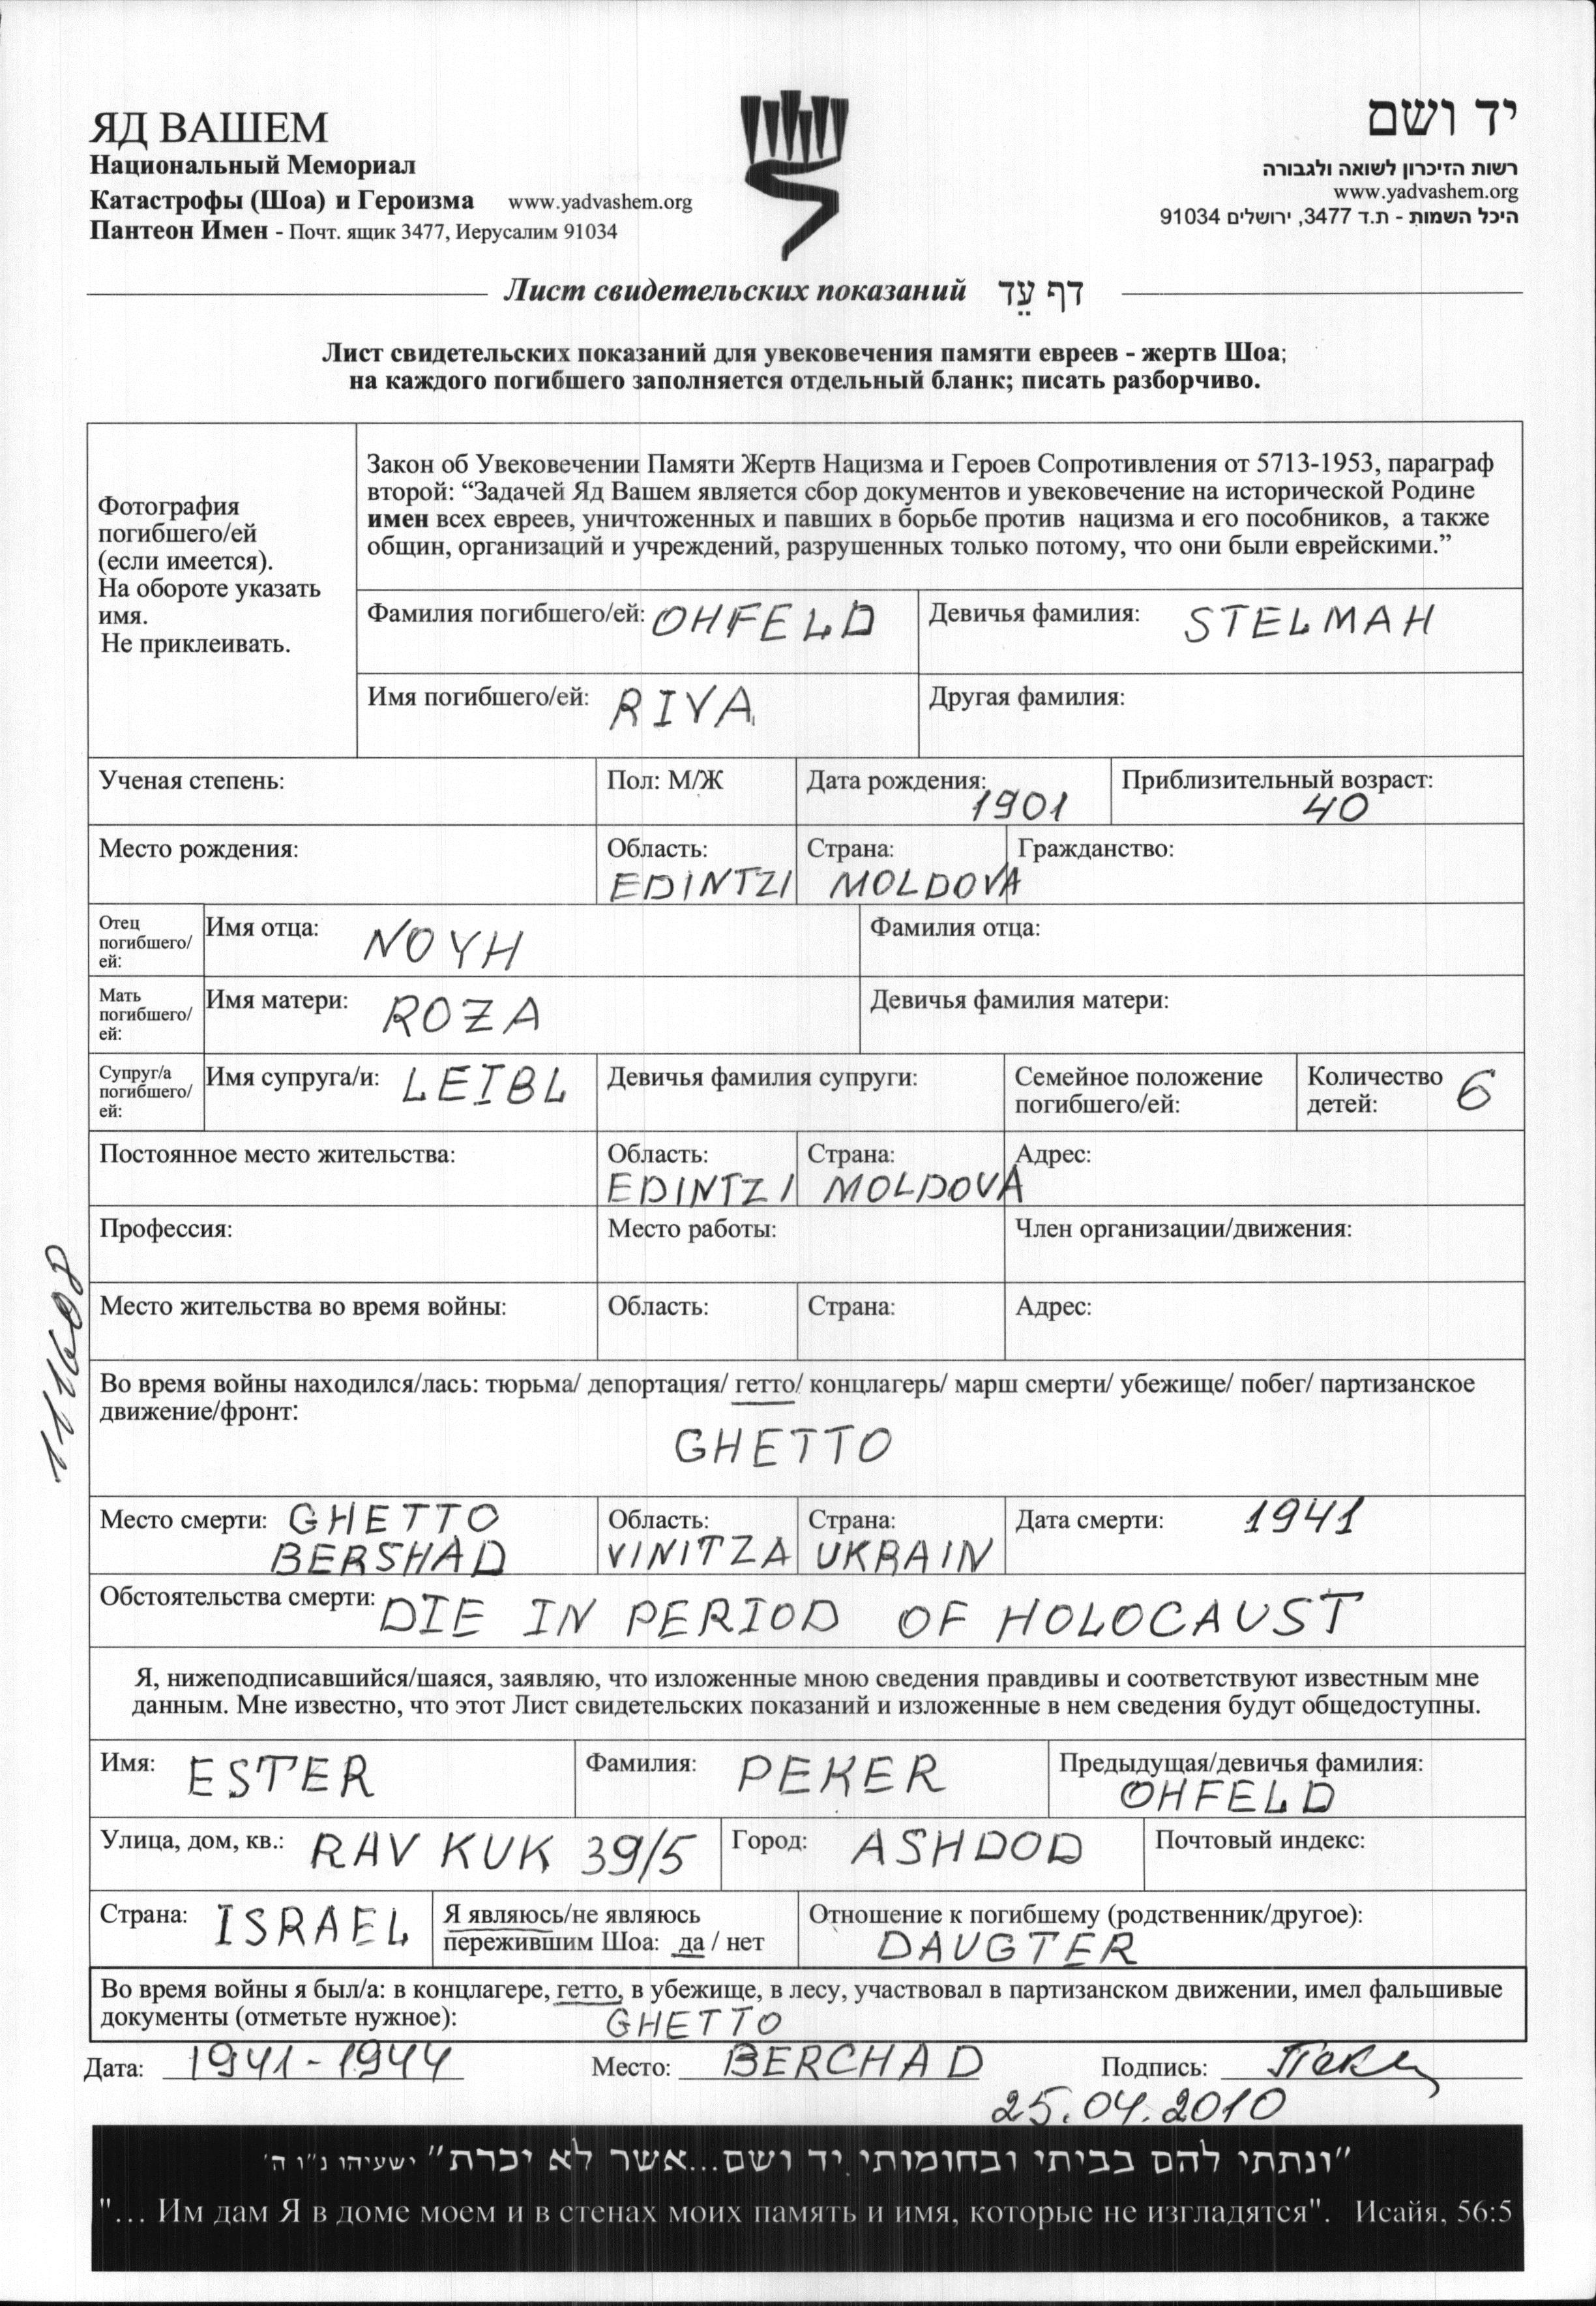 ЯД ВАШЕМ
Национальный Мемориал
Катастрофы (Шоа) и Героизма www.yadvashem.org
Пантеон Имен - Почт. ящик 3477, Иерусалим 91034
יד ושם
רשות הזיכרון לשואה ולגבורה
www.yadvashem.org
היכל השמות - ת.ד 3477, ירושלים 91034
Лист свидетельских показаний דף עֵד
Лист свидетельских показаний для увековечения памяти евреев - жертв Шоа;
на каждого погибшего заполняется отдельный бланк; писать разборчиво.
Фотография
погибшего/ей
(если имеется).
На обороте указать
имя.
Не приклеивать.
Закон об Увековечении Памяти Жертв Нацизма и Героев Сопротивления от 5713-1953, параграф
второй: “Задачей Яд Вашем является сбор документов и увековечение на исторической Родине
имен всех евреев, уничтоженных и павших в борьбе против нацизма и его пособников, а также
общин, организаций и учреждений, разрушенных только потому, что они были еврейскими.”
Фамилия погибшего/ей: OHFELD Девичья фамилия: STELMAH
Имя погибшего/ей: RIVA Другая фамилия:
Ученая степень: Пол: М/Ж Дата рождения: 1901 Приблизительный возраст: 40
Место рождения: Область: EDINTZI Страна: MOLDOVA Гражданство:
Отец
погибшего/
ей:
Имя отца: NOYH Фамилия отца:
Мать
погибшего/
ей:
Имя матери: ROZA Девичья фамилия матери:
Супруг/а
погибшего/
ей:
Имя супруга/и: LEIBL Девичья фамилия супруги: Семейное положение
погибшего/ей:
Количество
детей: 6
Постоянное место жительства: Область: EDINTZI Страна: MOLDOVA Адрес:
Профессия: Место работы: Член организации/движения:
Место жительства во время войны: Область: Страна: Адрес:
111608
Во время войны находился/лась: тюрьма/ депортация/ гетто/ концлагерь/ марш смерти/ убежище/ побег/ партизанское
движение/фронт:
GHETTO
Место смерти: GHETTO
BERSHAD
Область: VINITZA Страна: UKRAIN Дата смерти: 1941
Обстоятельства смерти: DIE IN PERIOD OF HOLOCAUST
Я, нижеподписавшийся/шаяся, заявляю, что изложенные мною сведения правдивы и соответствуют известным мне
данным. Мне известно, что этот Лист свидетельских показаний и изложенные в нем сведения будут общедоступны.
Имя: ESTER Фамилия: PEKER Предыдущая/девичья фамилия:
OHFELD
Улица, дом, кв.: RAV KUK 39/5 Город: ASHDOD Почтовый индекс:
Страна: ISRAEL Я являюсь/не являюсь
пережившим Шоа: да / нет
Отношение к погибшему (родственник/другое):
DAUGTER
Во время войны я был/а: в концлагере, гетто, в убежище, в лесу, участвовал в партизанском движении, имел фальшивые
документы (отметьте нужное): GHETTO
Дата: 1941-1944 Место: BERCHAD Подпись:
25.04.2010
"ונתתי להם בביתי ובחומותי יד ושם...אשר לא יכרת" ישעיהו נ"ו ה'
"... Им дам Я в доме моем и в стенах моих память и имя, которые не изгладятся". Исайя, 56:5